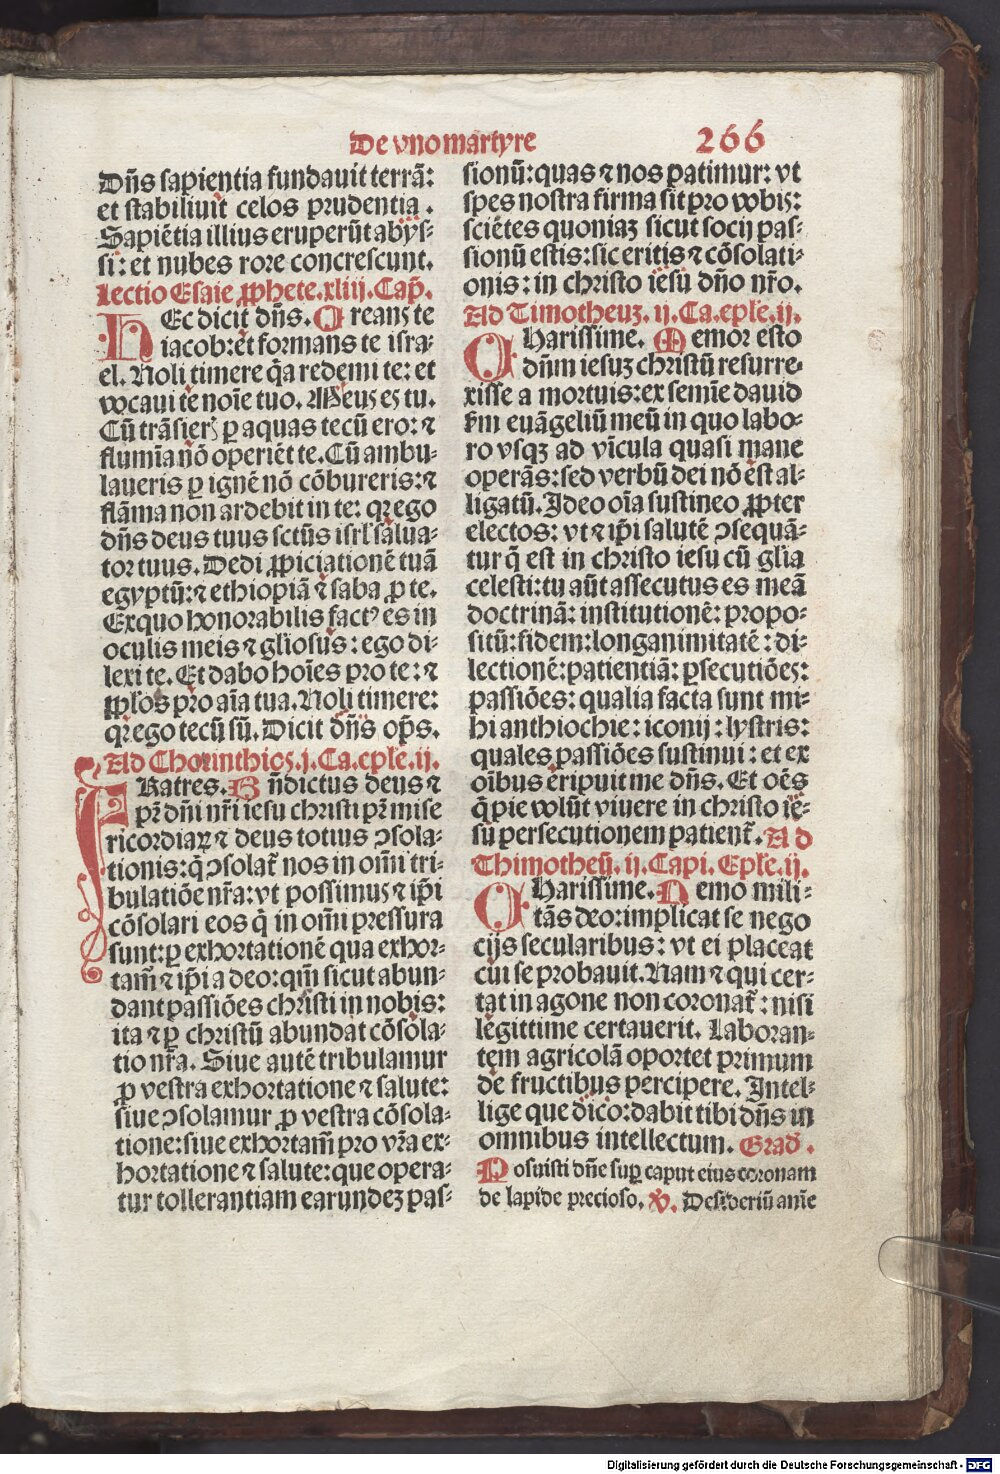 De vno martyre 266
Dn̄s sapientia fundauit terrā:
et stabiliuit celos prudentia.
Sapiētia illius eruperūt abys⸗
si: et nubes rore concrescunt.
Lectio Esaie ꝓphete. xliij. Cap̄.
HEc dicit dn̄s. Creans te
iacob: et formans te isra⸗
el. Noli timere q̄a redemi te: et
vocaui te noīe tuo. Meus es tu.
Cū trāsierꝭ ꝑ aquas tecū ero: ⁊
flumīa nō operiēt te. Cū ambu⸗
laueris ꝑ ignē nō cōbureris: ⁊
flāma non ardebit in te: qꝛ ego
dn̄s deus tuus sctūs isrl̄ salua⸗
tor tuus. Dedi ꝓpiciationē tuā
egyptū: ⁊ ethiopiā ⁊ saba ꝓ te.
Ex quo honorabilis factꝰ es in
oculis meis ⁊ gl̄iosus: ego di⸗
lexi te. Et dabo hoīes pro te: ⁊
ꝓpl̄os pro aīa tua. Noli timere:
qꝛ ego tecū sū. Dicit dn̄s op̄s.
Ad Chorinthios. j. Ca. ep̄le. ij.
FRatres. Bn̄dictus deus ⁊
pr̄ dn̄i nr̄i iesu christi pr̄ mise
ricordiaꝝ ⁊ deus totius ↄsola⸗
tionis: q̄ ↄsolat̄ nos in om̄i tri⸗
bulatiōe nr̄a: vt possimus ⁊ ip̄i
cōsolari eos q̄ in om̄i pressura
sunt: ꝑ exhortationē qua exhor⸗
tam̄ ⁊ ip̄i a deo: qm̄ sicut abun⸗
dant passiōes christi in nobis:
ita ⁊ ꝑ christū abundat cōsola⸗
tio nr̄a. Siue autē tribulamur
ꝓ vestra exhortatione ⁊ salute:
siue ↄsolamur ꝓ vestra cōsola⸗
tione: siue exhortam̄ pro vr̄a ex⸗
hortatione ⁊ salute: que opera⸗
tur tollerantiam earundeꝫ pas⸗
sionū: quas ⁊ nos patimur: vt
spes nostra firma sit pro vobis:
sciētes quoniaꝫ sicut socij pas⸗
sionū estis: sic eritis ⁊ cōsolati⸗
onis: in christo iesu dn̄o nr̄o.
Ad Timotheuꝫ. ij. Ca. ep̄le. ij.
CHarissime. Memor esto
dn̄m iesuꝫ christū resurre⸗
xisse a mortuis: ex semīe dauid
km̄ euāgeliū meū in quo labo⸗
ro vsqꝫ ad vīcula quasi mane
operās: sed verbū dei nō est al⸗
ligatū. Ideo oīa sustineo ꝓpter
electos: vt ⁊ ip̄i salutē ↄsequā⸗
tur q̄ est in christo iesu cū gl̄ia
celesti: tu aūt assecutus es meā
doctrinā: institutionē: propo⸗
sitū: fidem: longanimitatē: di⸗
lectionē: patientiā: ꝑsecutiōes:
passiōes: qualia facta sunt mi⸗
hi anthiochie: iconij: lystris:
quales passiōes sustinui: et ex
oībus eripuit me dn̄s. Et oēs
q̄ pie volūt viuere in christo ie⸗
su persecutionem patient̄. Ad
Thimotheū. ij. Capi. Ep̄le. ij.
CHarissime. Nemo mili⸗
tās deo: implicat se nego
cijs secularibus: vt ei placeat
cui se probauit. Nam ⁊ qui cer⸗
tat in agone non coronat̄: nisi
legittime certauerit. Laboran⸗
tem agricolā oportet primum
de fructibus percipere. Intel⸗
lige que dico: dabit tibi dn̄s in
omnibus intellectum. Grad̄.
Posuisti dn̄e suꝑ caput eius coronam
de lapide precioso. ℣. Desideriū anīe
Digitalisierung gefördert durch die Deutsche Forschungsgemeinschaft - DFG